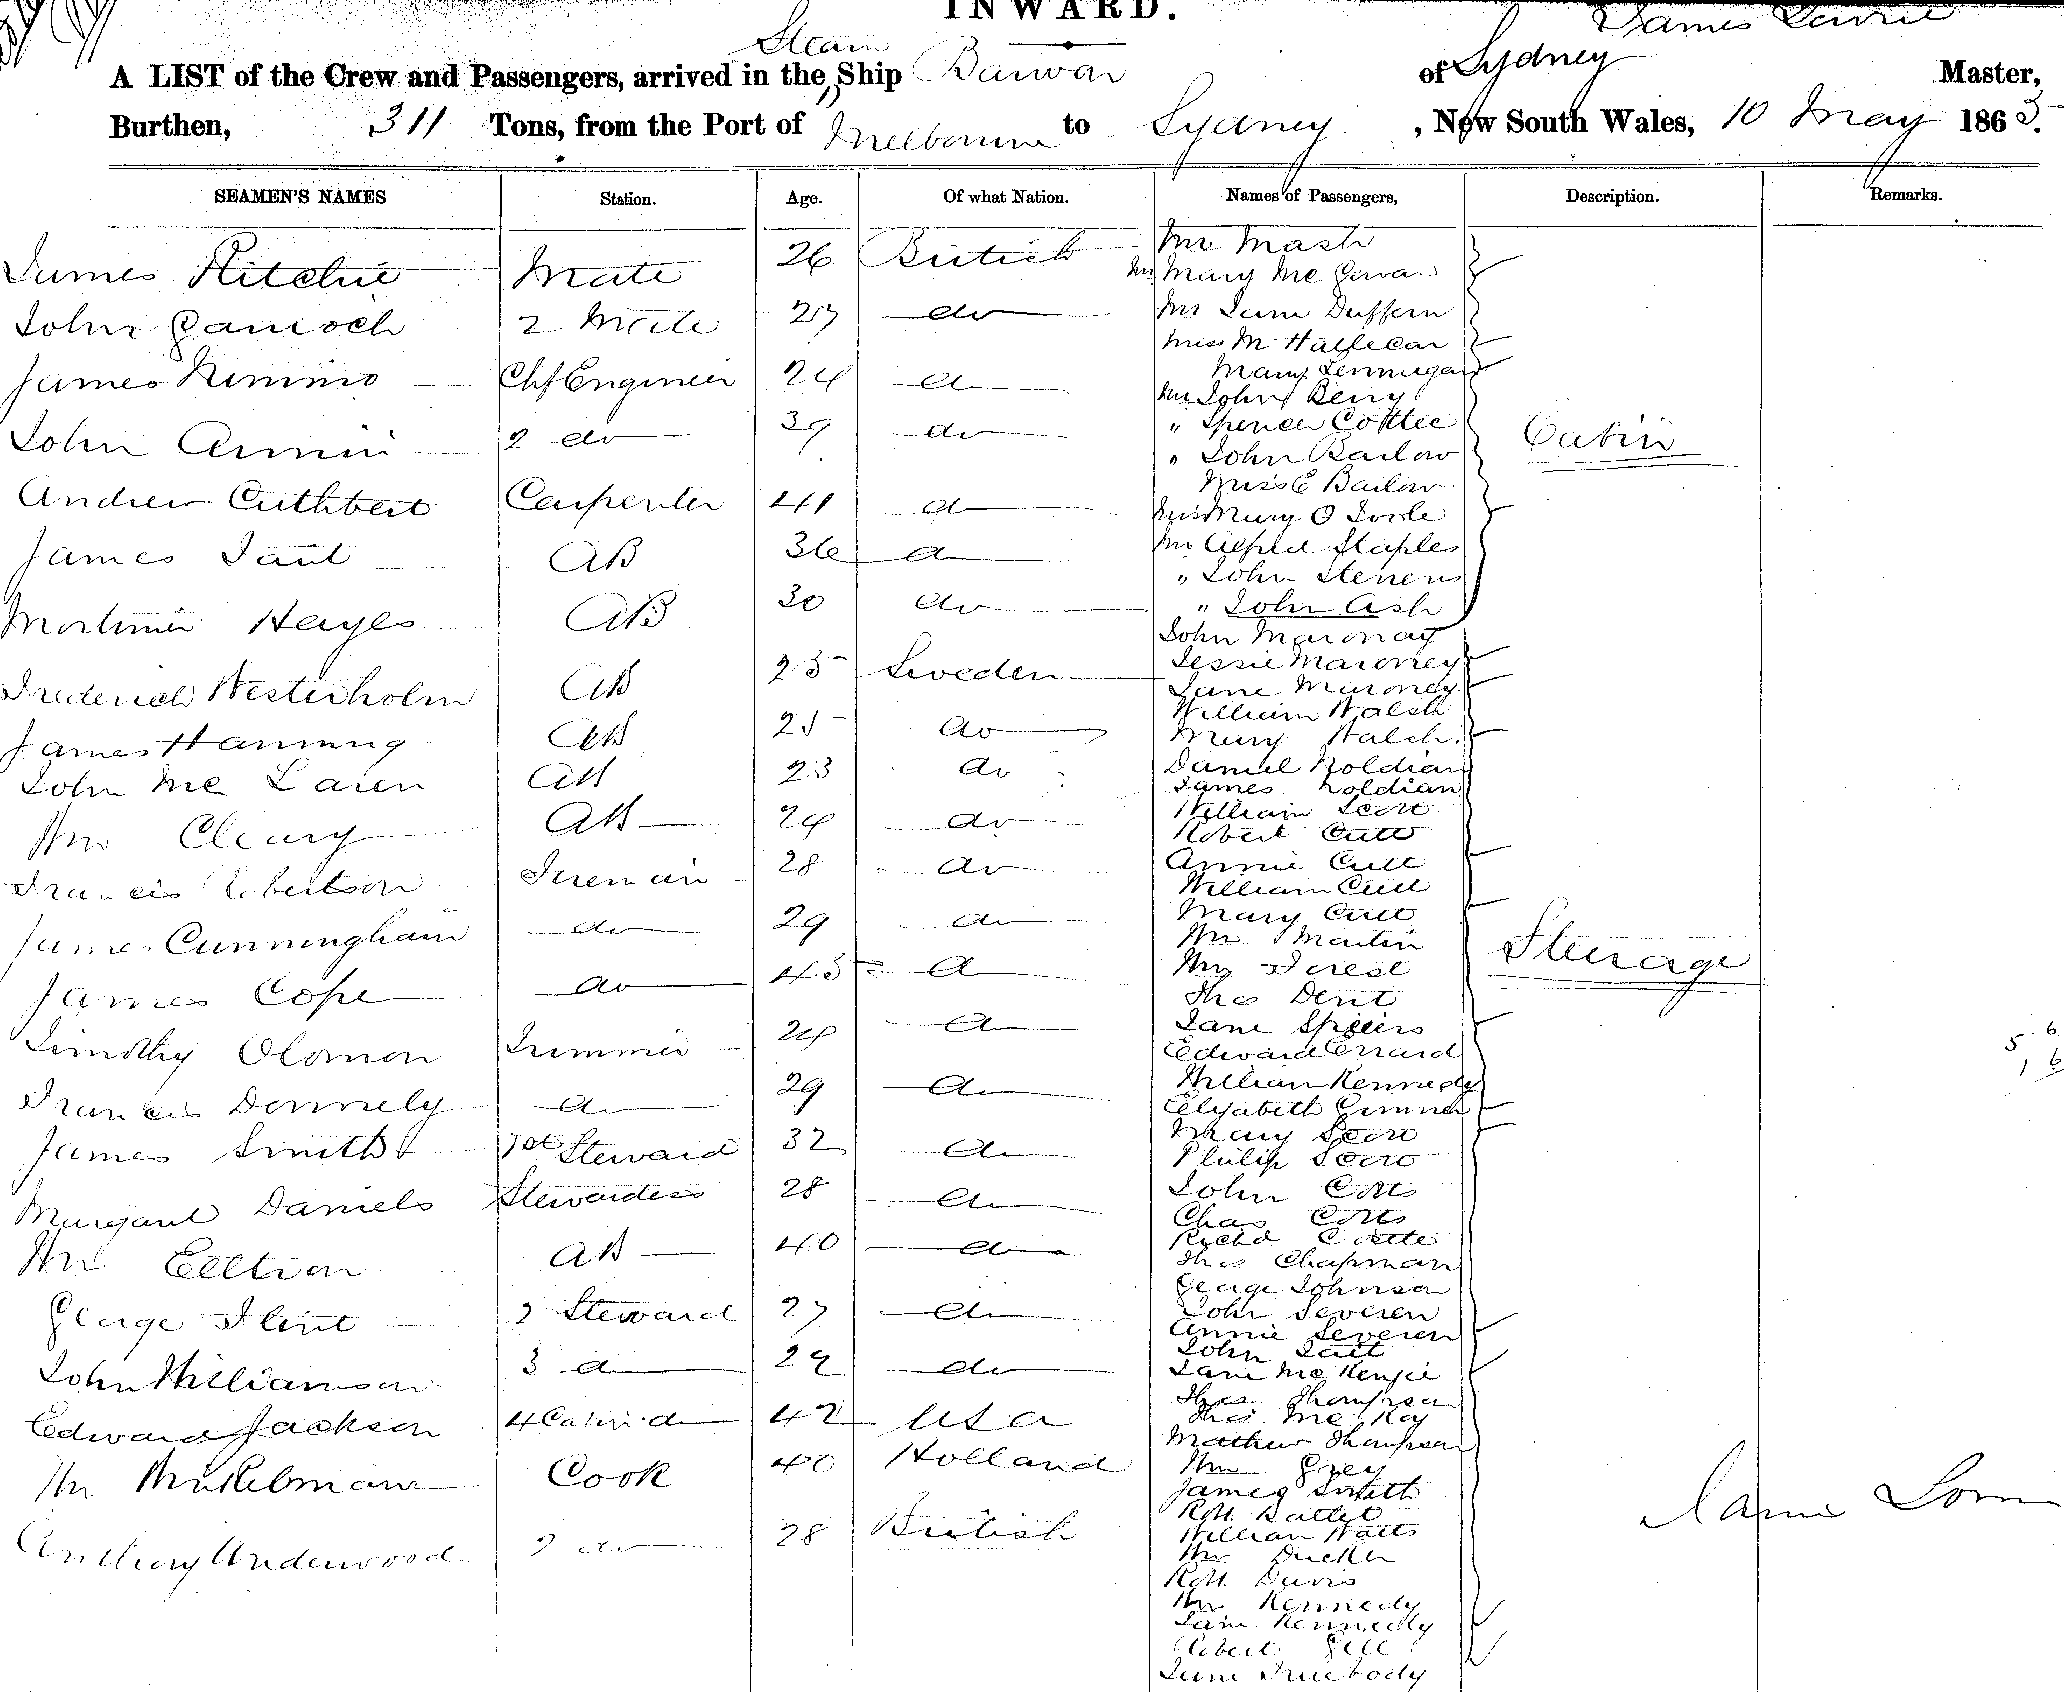 INWARD.
James Lawrie
A LIST of the Crew and Passengers, arrived in the Steam Ship Barwon of Sydney Master,
Burthen, 311 Tons, from the Port of Melbourne to Sydney, New South Wales, 10 May 1863.
SEAMEN'S NAMES Station. Age. Of what Nation. Names of Passengers, Description. Remarks.
James Ritchie Mate 26 British
John 2 Mate 27 do
James Nimmo Chf Engineer 24 do
John 2 do 39 do
Andrew Cuthbert Carpenter 41 do
James Taut AB 36 do
Mortimer Hayes AB 30 do
Frederich Westerholm AB 25 Sweden
James Hanning AB 25 do
John Mc Laren AB 23 do
Wm Cleary AB 24 do
Francis Robertson Fireman 28 do
James Cunningham do 29 do
James Cope do 45 do
Timothy Olomon Trimmer 24 do
Francis Donnely do 29 do
James Smith 1st Steward 32 do
Margaret Daniels Stewardess 28 do
Wm AB 40 do
George Flint 2 Steward 27 do
John Williamson 3 do 22 do
Edward Jackson 4 Cabin do 42 USA
Wm Cook 40 Holland
Anthony Underwood 2 do 28 British
Mr Mash
Mrs Mary Mc
Mrs Jane Duffern
Miss M
Mary
Mr John Berry
" Spencer Cottee
" John Barlow
Miss E Barlow
Miss Mary O Toole
Mr Alfred Staples
" John Stevens
" John Ash
Cabin
John Maroney
Jessie Maroney
Jane Maroney
William Walsh
Mary Walsh
Daniel
James
William Scott
Robert Cutt
Annie Cutt
William Cutt
Mary Cutt
Wm Martin
Wm
Thos Dent
Jane Spiers
Edward Errard
William Kennedy
Elizabeth
Mary Scott
Philip Scott
John Cotts
Chas Cotts
Richd
Thos Chapman
George Johnson
John Severen
Annie Severen
John Tait
Jane Mc Kenzie
Thos Thompson
Thos Mc Kay
Mathew Thompson
Wm Grey
James Smith
Robt
William Watts
Wm Ducker
Robt Davis
Wm Kennedy
Jane Kennedy
Robert Gill
Jane Truebody
Steerage